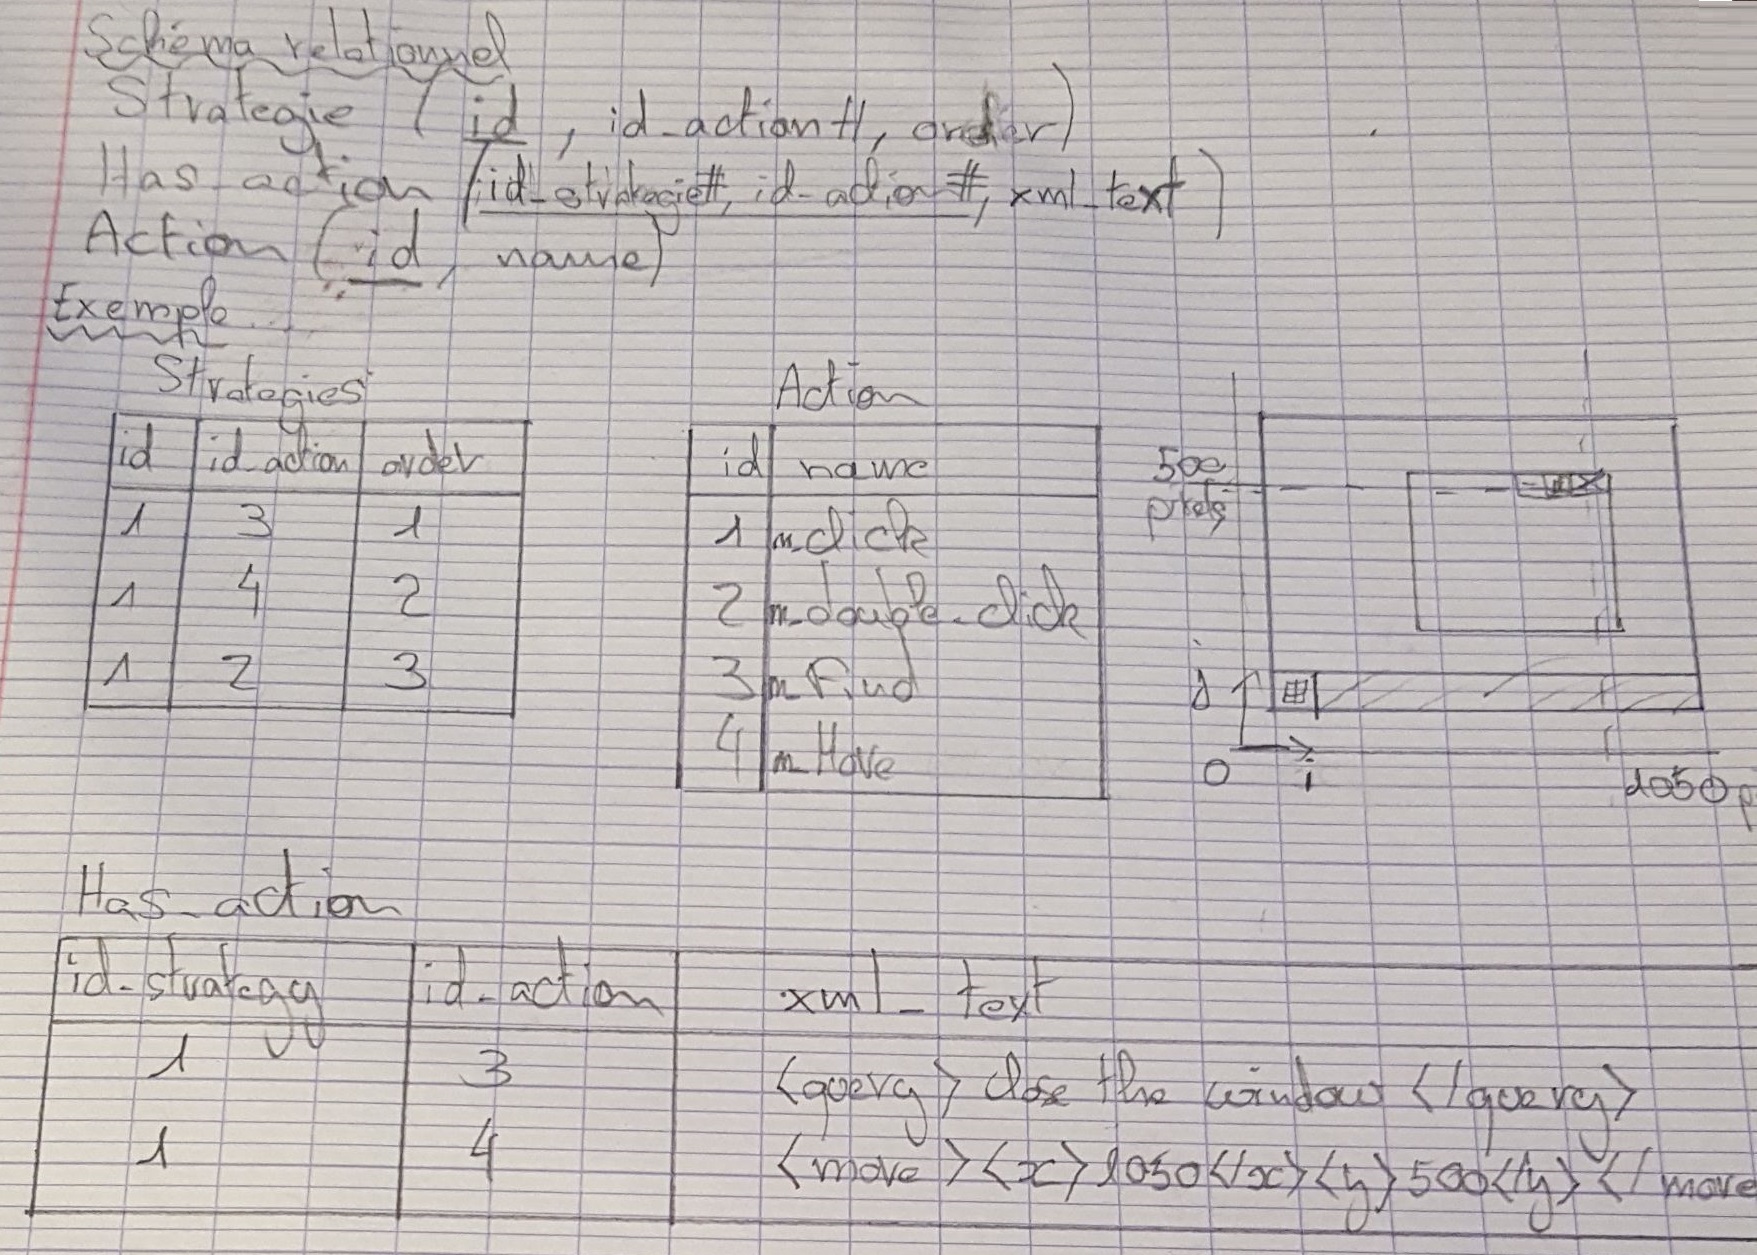 Schéma relationnel
Strategie (id, id_action#, order)
Has_action (id_strategie#, id_action#, xml_text)
Action (id, name)
Exemple
Strategies
id id_action order
1 3 1
1 4 2
1 2 3
Action
id name
1 m_click
2 m_double_click
3 m_Find
4 m_Move
500
pixels
j
O i
1050 p
Has_action
id_strategy id_action xml_text
1 3 <query> Close the window </query>
1 4 <move><x>1050</x><y>500</y></move